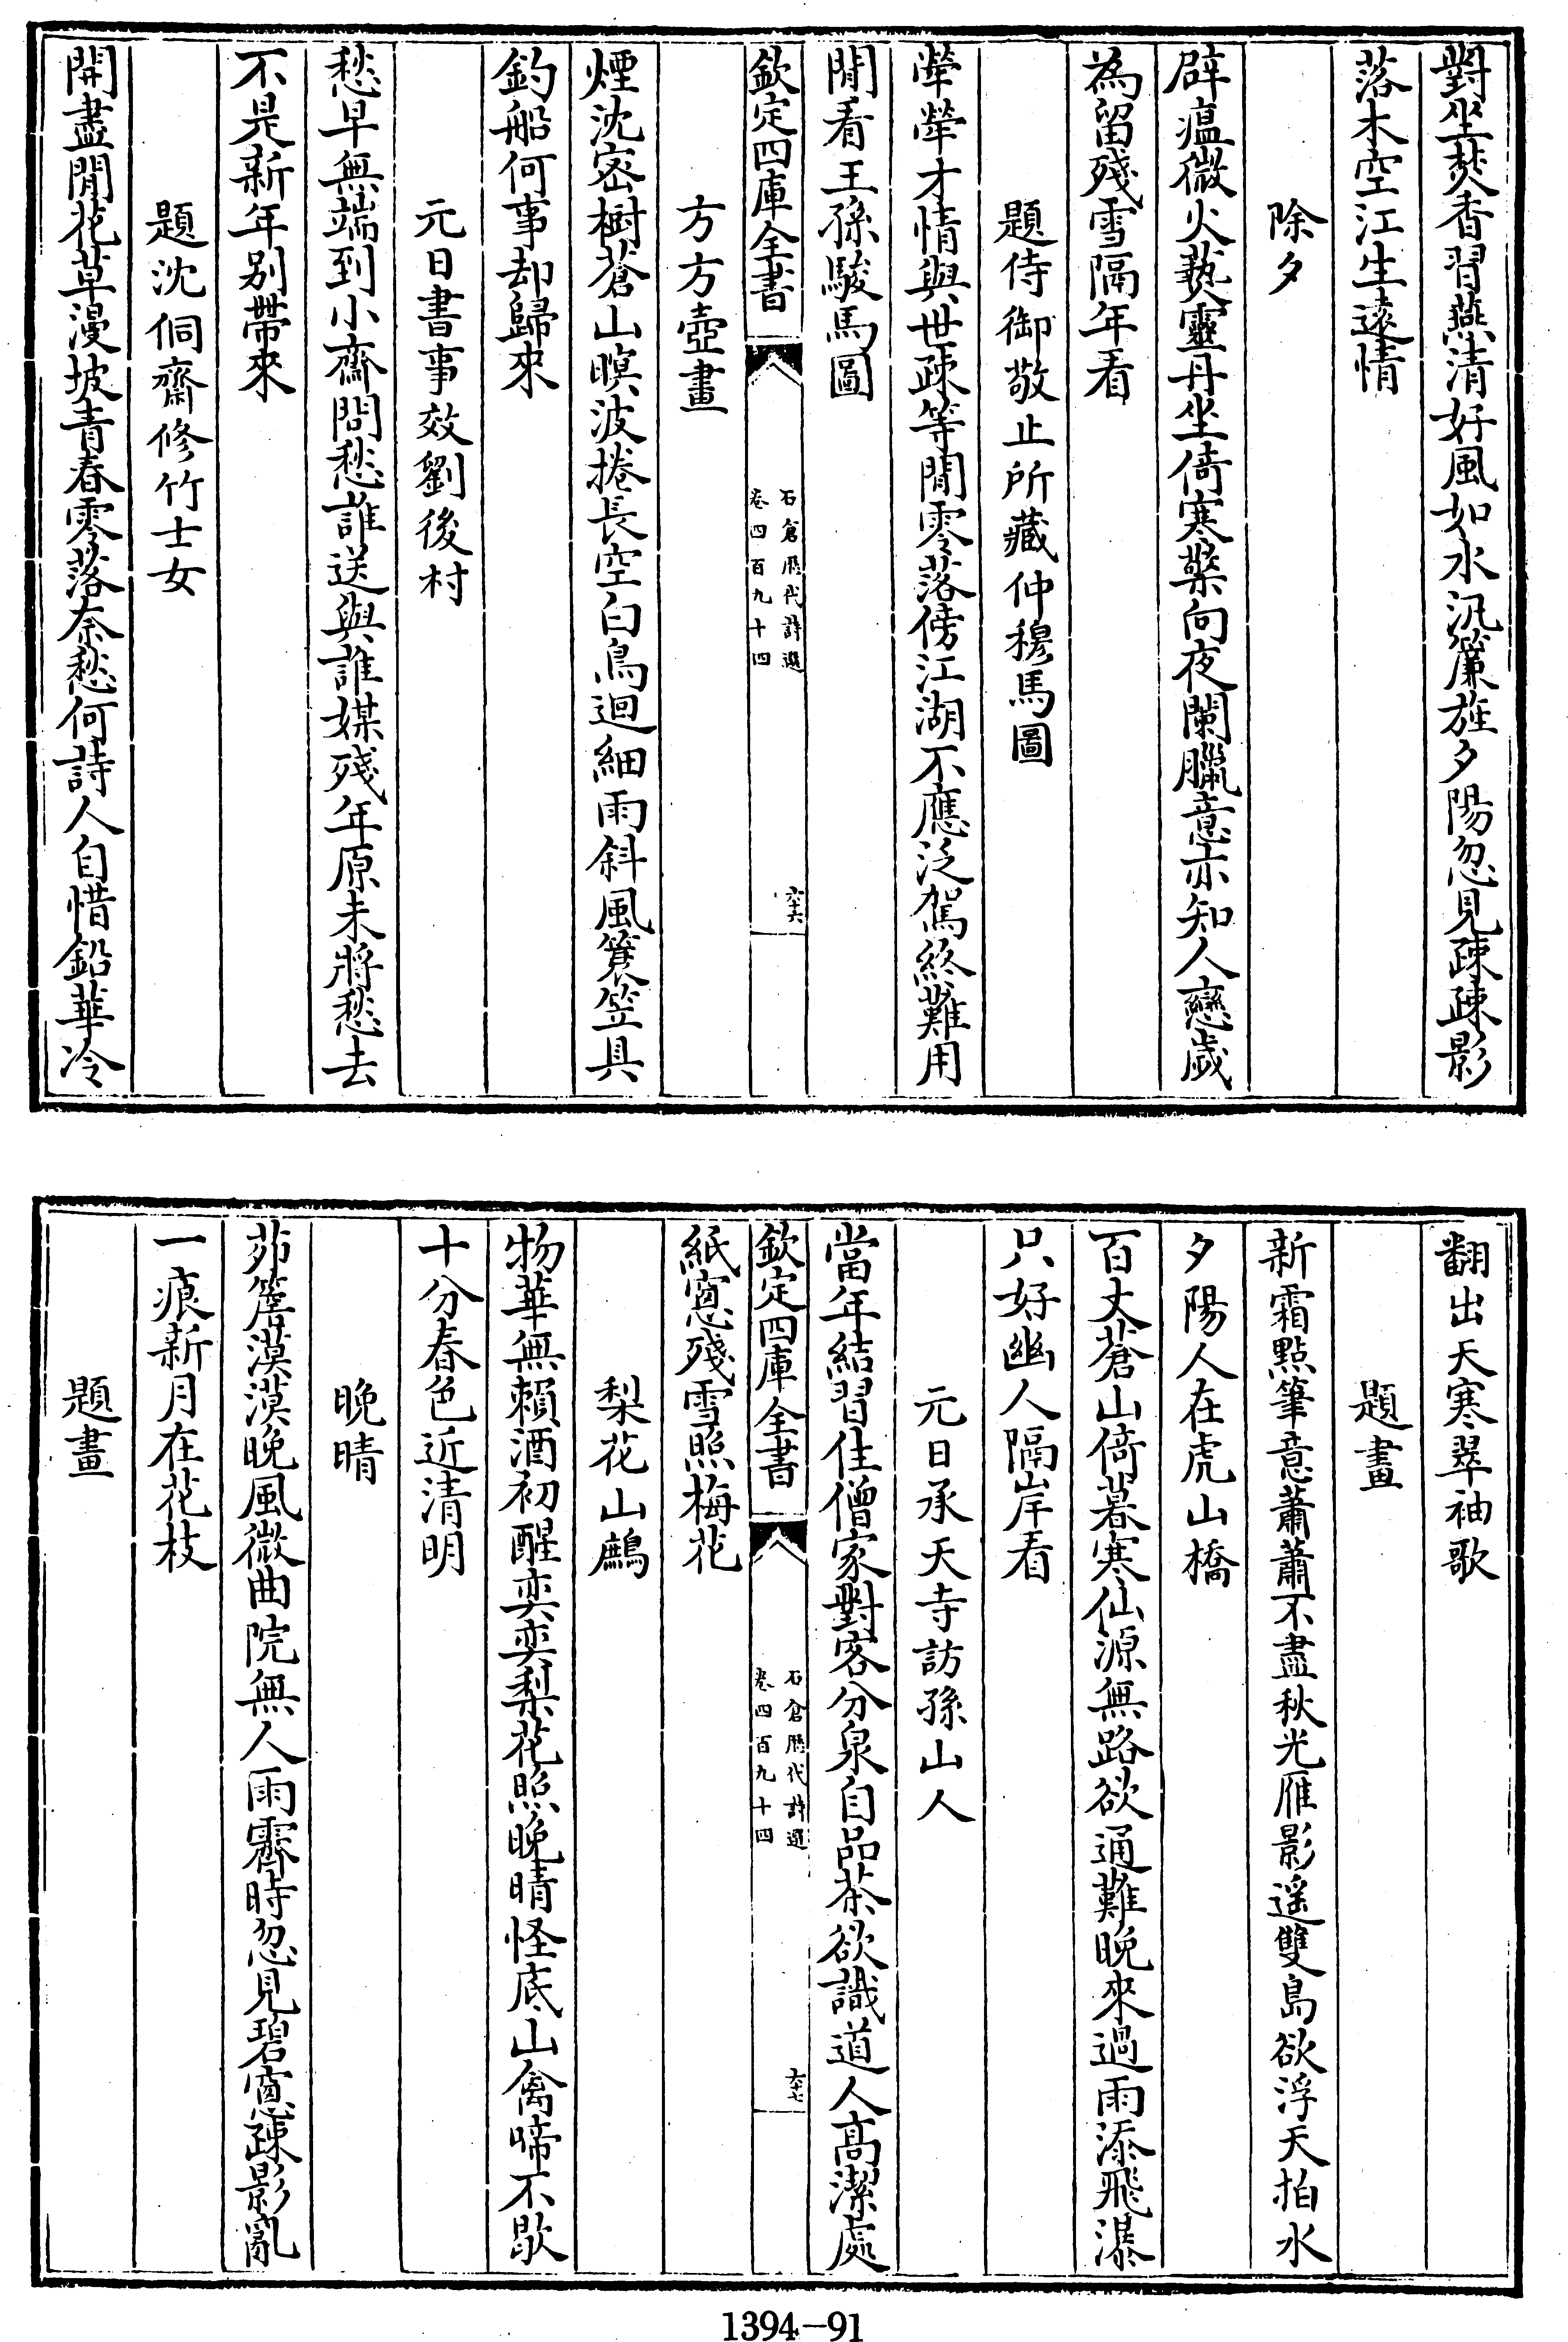 對坐焚香習燕清好風如水汎簾旌夕陽忽見疎疎影
落木空江生遠情
除夕
辟瘟微火爇靈丹坐倚寒檠向夜闌臘意亦知人戀歲
為留殘雪隔年看
題侍御敬止所藏仲穆馬圖
犖犖才情與世疎等閒零落傍江湖不應泛駕終難用
閒看王孫駿馬圖
欽定四庫全書
石倉歷代詩選
卷四百九十四
六十六
方方壺畫
煙沈密樹蒼山暝波捲長空白鳥迴細雨斜風簑笠具
釣船何事却歸來
元日書事效劉後村
愁早無端到小齋問愁誰送與誰媒殘年原未將愁去
不是新年别帶來
題沈侗齋修竹士女
開盡閒花草漫坡青春零落奈愁何詩人自惜鉛華冷
翻出天寒翠袖歌
題畫
新霜點筆意蕭蕭不盡秋光雁影遥雙島欲浮天拍水
夕陽人在虎山橋
百丈蒼山倚暮寒仙源無路欲通難晚來過雨添飛瀑
只好幽人隔岸看
元日承天寺訪孫山人
當年結習住僧家對客分泉自品茶欲識道人髙潔處
欽定四庫全書
石倉歷代詩選
卷四百九十四
六十七
紙窻殘雪照梅花
梨花山鷓
物華無賴酒初醒奕奕梨花照晚晴怪底山禽啼不歇
十分春色近清明
晚晴
茆簷漠漠晚風微曲院無人雨霽時忽見碧窻疎影亂
一痕新月在花枝
題畫
1394-91